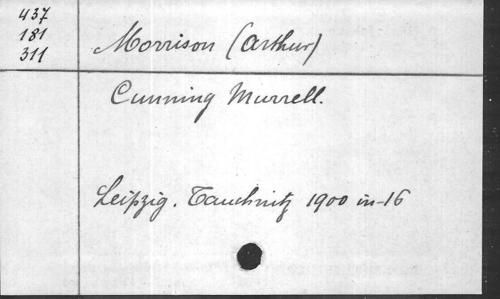 437
181
311
Morrison (Arthur)
Cunning Murrell.
Leipzig. Tauchnitz 1900 in-16